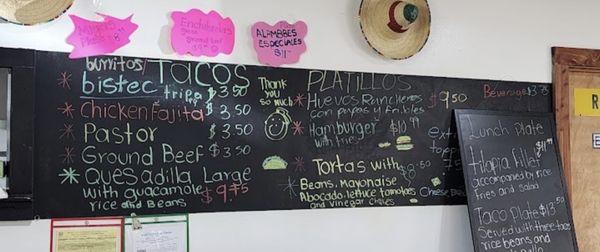 Enchiladas
ALAMBRES
ESPECIALES
$11
burritos
TACOS
bistec tripa $3 50
Chicken Fajita $3 50
Pastor $3 50
Ground Beef $3 50
Quesadilla Large
with guacamole $9.75
rice and Beans
Thank
you
so much
PLATILLOS
Huevos Rancheros $9 50
con papas y frijoles
Hamburger $10 99
with fries
Tortas with
Beans, Mayonaise
Abocado, lettuce, tomatoes, Cheese
and vinegar chiles
Beverage
Lunch Plate
$11.99
tilapia fillet
accompanied by rice
fries and salad
Taco Plate $13.50
Served with three tacos
rice beans and